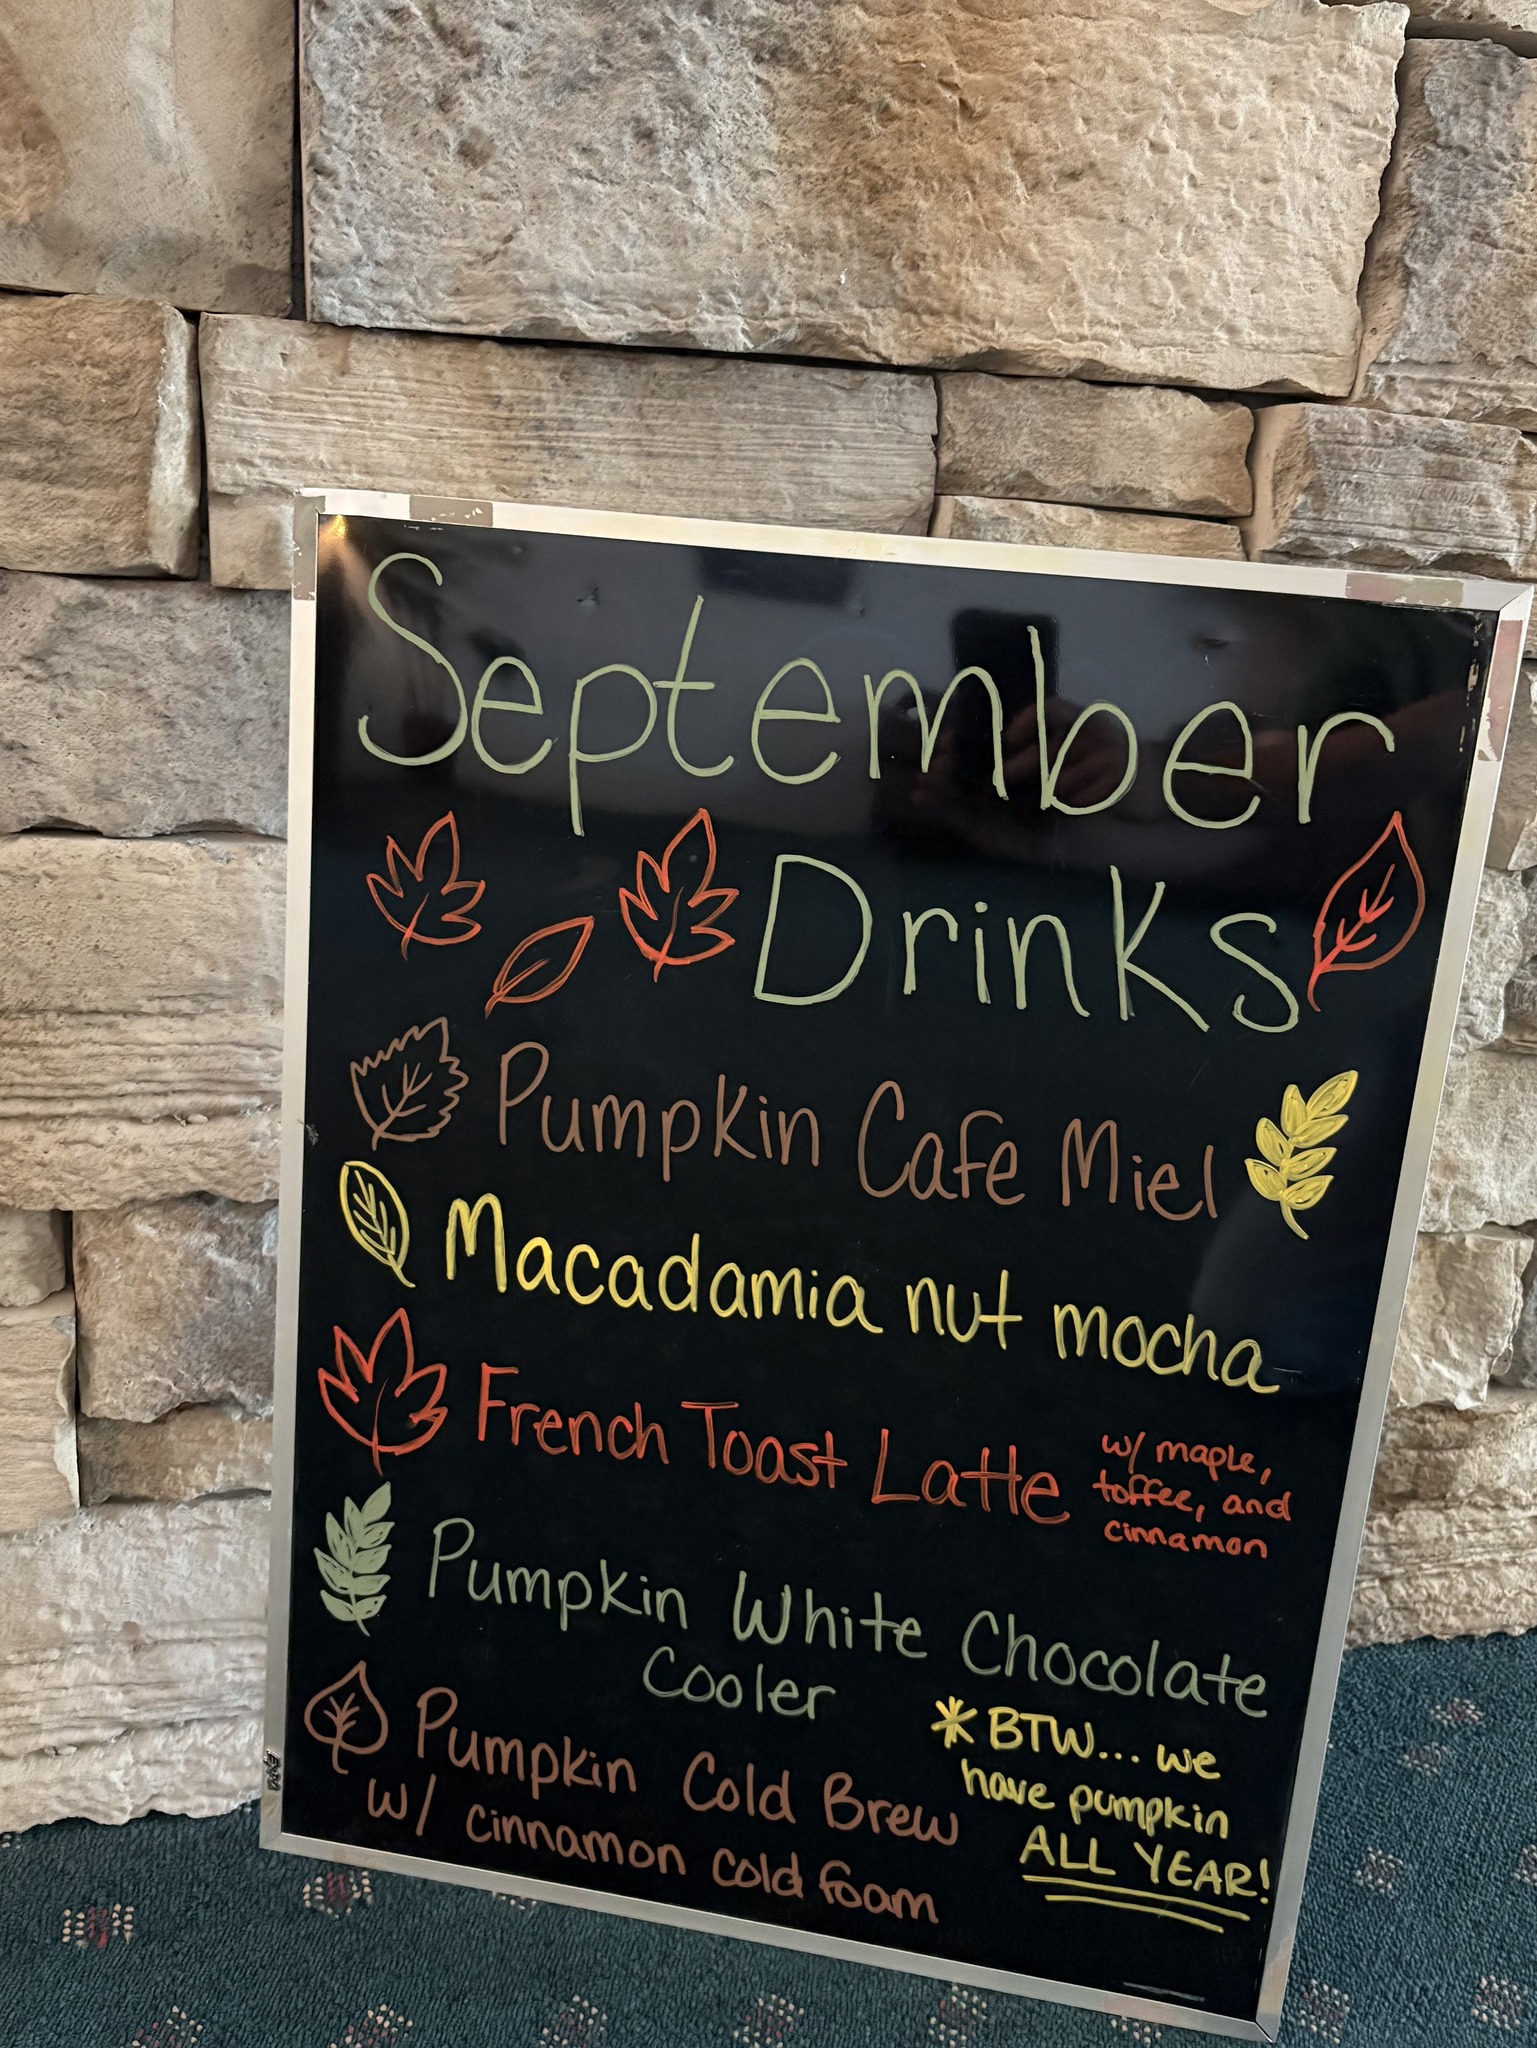 September
Drinks
Pumpkin Cafe Miel
Macadamia nut mocha
French Toast Latte
w/ maple,
toffee, and
cinnamon
Pumpkin White Chocolate
Cooler
Pumpkin Cold Brew
w/ cinnamon cold foam
* BTW... we
have pumpkin
ALL YEAR!